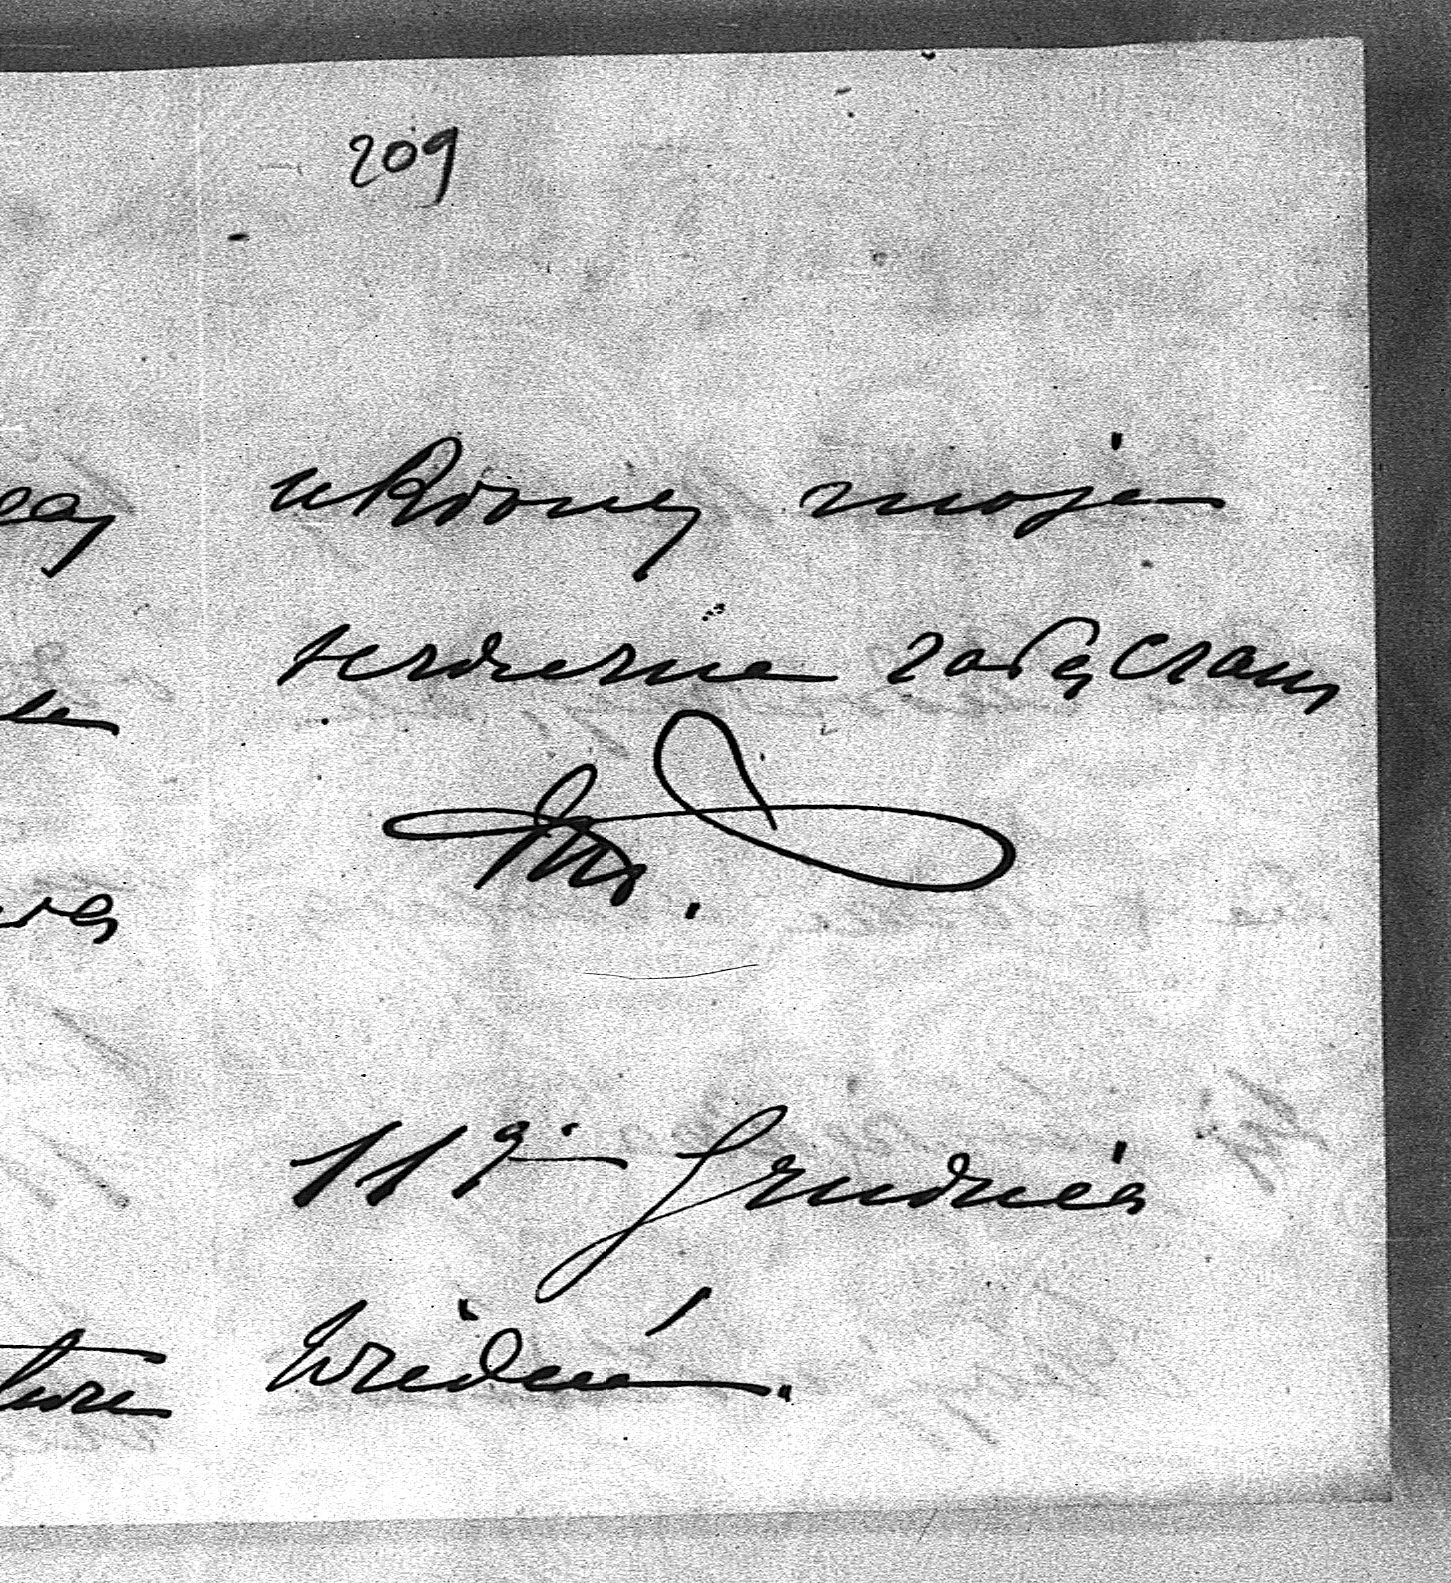 209
ukłony moje
serdeczne załączam
11go Grudnia
Wiedeń.